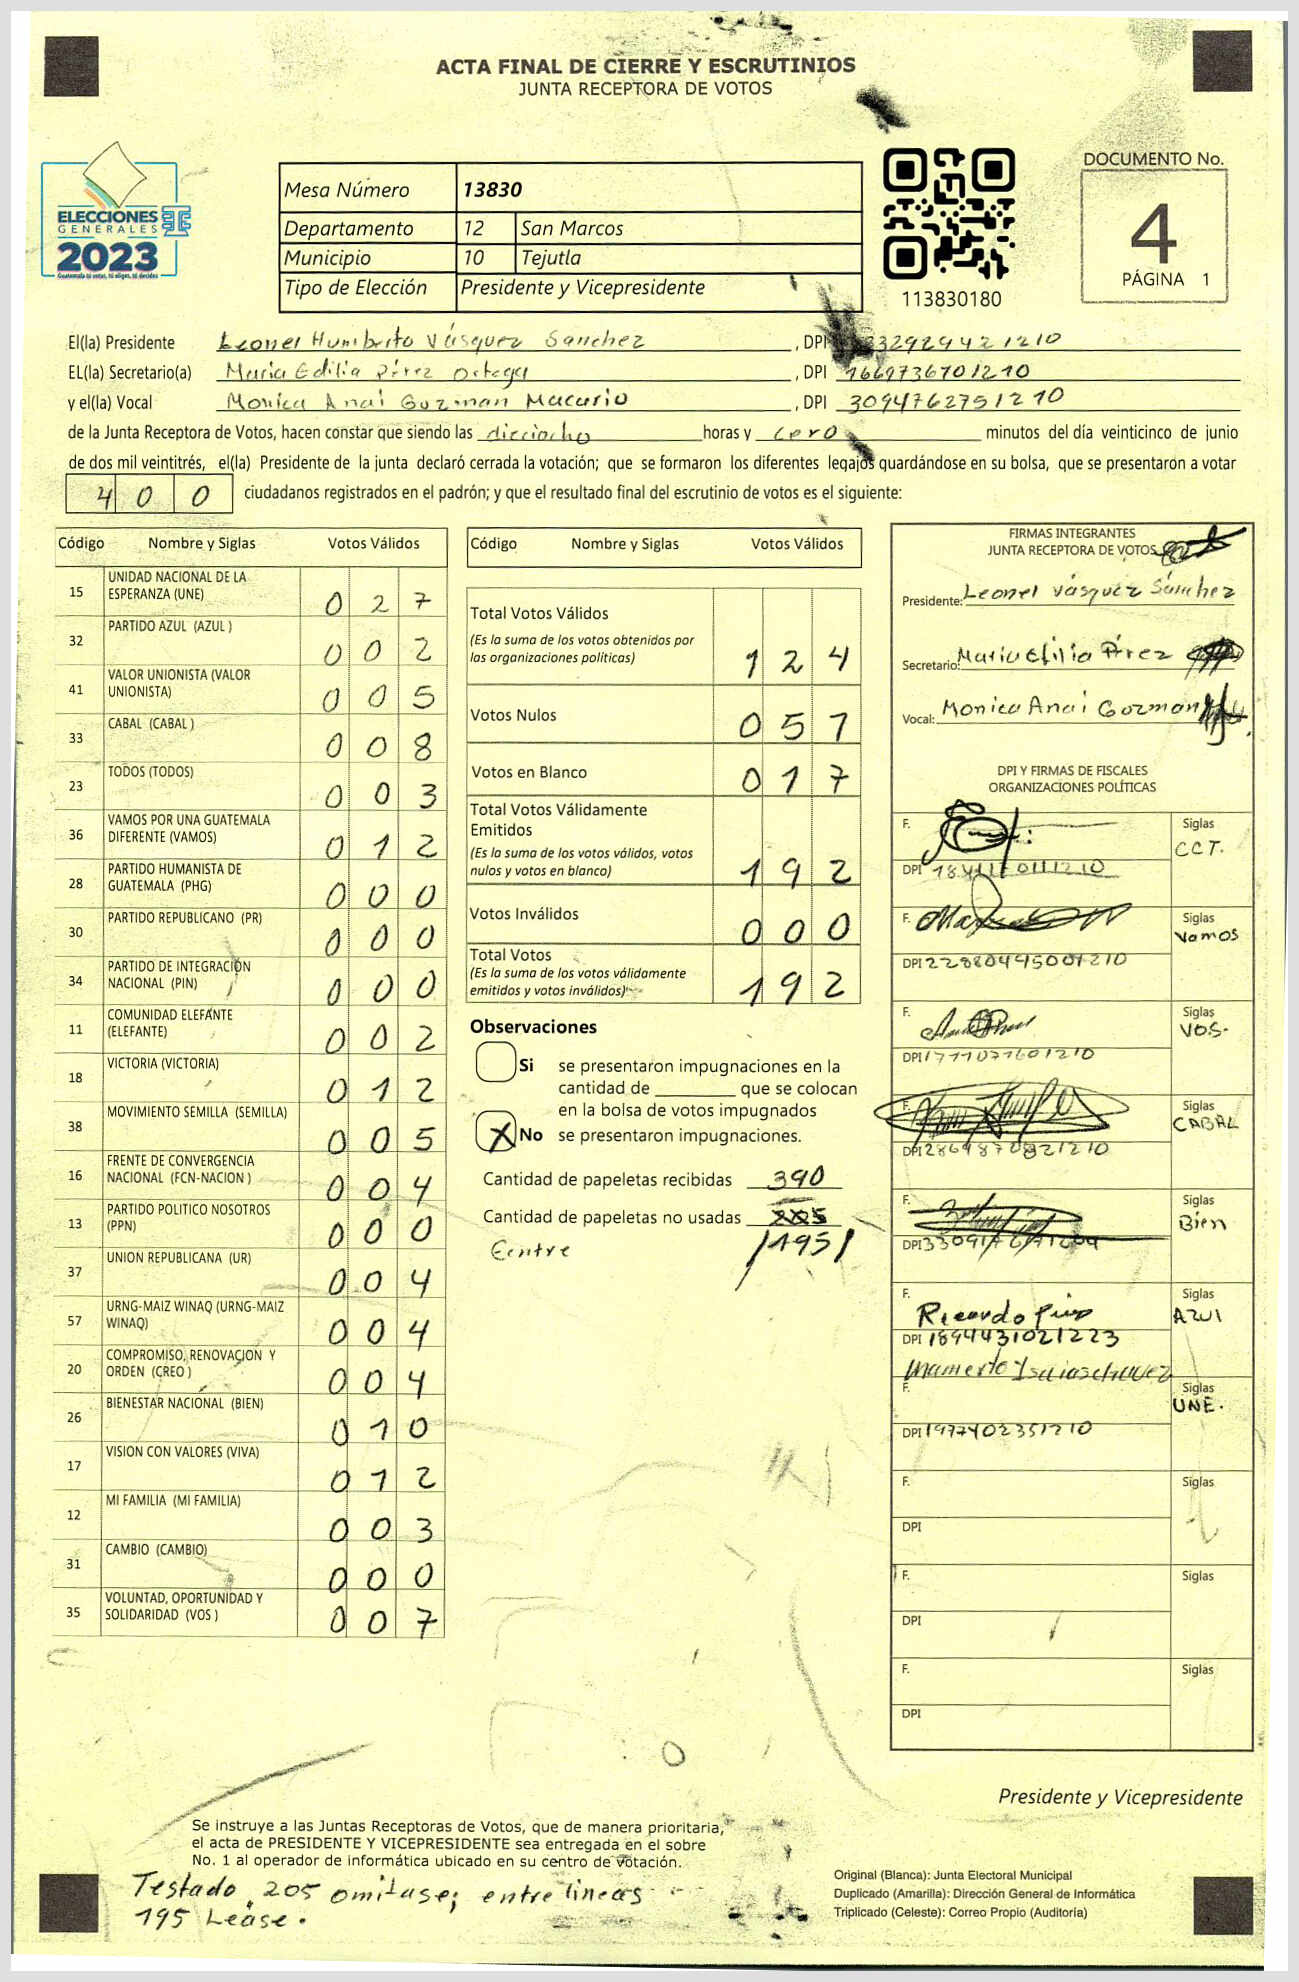 ACTA FINAL DE CIERRE Y ESCRUTINIOS
JUNTA RECEPTORA DE VOTOS
ELECCIONES
GENERALES
2023
Guatemala tú votas, tú eliges, tú decides
Mesa Número 13830
Departamento 12 San Marcos
Municipio 10 Tejutla
Tipo de Elección Presidente y Vicepresidente
113830180
DOCUMENTO No.
4
PÁGINA 1
El(la) Presidente Leonel Humbrito Vásquez Sanchez , DPI
EL(la) Secretario(a) Maria Edilia Pérez Ortega , DPI 1669736701210
y el(la) Vocal Monica Anai Guzman Macario , DPI 3094762751210
de la Junta Receptora de Votos, hacen constar que siendo las dieciocho horas y cero minutos del día veinticinco de junio
de dos mil veintitrés, el(la) Presidente de la junta declaró cerrada la votación; que se formaron los diferentes legajos quardándose en su bolsa, que se presentaron a votar
400 ciudadanos registrados en el padrón; y que el resultado final del escrutinio de votos es el siguiente:
Código Nombre y Siglas Votos Válidos
15 UNIDAD NACIONAL DE LA ESPERANZA (UNE) 027
32 PARTIDO AZUL (AZUL ) 002
41 VALOR UNIONISTA (VALOR UNIONISTA) 005
33 CABAL (CABAL ) 008
23 TODOS (TODOS) 003
36 VAMOS POR UNA GUATEMALA DIFERENTE (VAMOS) 012
28 PARTIDO HUMANISTA DE GUATEMALA (PHG) 000
30 PARTIDO REPUBLICANO (PR) 000
34 PARTIDO DE INTEGRACIÓN NACIONAL (PIN) 000
11 COMUNIDAD ELEFANTE (ELEFANTE) 002
18 VICTORIA (VICTORIA) 012
38 MOVIMIENTO SEMILLA (SEMILLA) 005
16 FRENTE DE CONVERGENCIA NACIONAL (FCN-NACION ) 004
13 PARTIDO POLITICO NOSOTROS (PPN) 000
37 UNION REPUBLICANA (UR) 004
57 URNG-MAIZ WINAQ (URNG-MAIZ WINAQ) 004
20 COMPROMISO, RENOVACION Y ORDEN (CREO ) 004
26 BIENESTAR NACIONAL (BIEN) 010
17 VISION CON VALORES (VIVA) 012
12 MI FAMILIA (MI FAMILIA) 003
31 CAMBIO (CAMBIO) 000
35 VOLUNTAD, OPORTUNIDAD Y SOLIDARIDAD (VOS ) 007
Código Nombre y Siglas Votos Válidos
Total Votos Válidos
(Es la suma de los votos obtenidos por
las organizaciones políticas) 124
Votos Nulos 057
Votos en Blanco 017
Total Votos Válidamente
Emitidos
(Es la suma de los votos válidos, votos
nulos y votos en blanco) 192
Votos Inválidos 000
Total Votos
(Es la suma de los votos válidamente
emitidos y votos inválidos) 192
Observaciones
Si se presentaron impugnaciones en la
cantidad de ________ que se colocan
en la bolsa de votos impugnados
X No se presentaron impugnaciones.
Cantidad de papeletas recibidas 390
Cantidad de papeletas no usadas
Eentre /195/
FIRMAS INTEGRANTES
JUNTA RECEPTORA DE VOTOS
Presidente: Leonel Vásquez Sánchez
Secretario: Maria Edilia Pérez
Vocal: Monica Anai Guzman
DPI Y FIRMAS DE FISCALES
ORGANIZACIONES POLÍTICAS
F. Siglas
DPI CCT.
F. Siglas
Vamos
DPI 22880495001210
F. Siglas
VOS.
DPI 1711071601210
F. Siglas
CABAL
DPI 2869870821210
F. Siglas
Bien
DPI
F. Siglas
Ricardo AZUl
DPI 1894431021223
Mamerto Isaias chavez
F. Siglas
UNE.
DPI 1977402351210
F. Siglas
DPI
F. Siglas
DPI
F. Siglas
DPI
Presidente y Vicepresidente
Se instruye a las Juntas Receptoras de Votos, que de manera prioritaria,
el acta de PRESIDENTE Y VICEPRESIDENTE sea entregada en el sobre
No. 1 al operador de informática ubicado en su centro de votación.
Testado 205 omitase; entre lineas
195 Lease.
Original (Blanca): Junta Electoral Municipal
Duplicado (Amarilla): Dirección General de Informática
Triplicado (Celeste): Correo Propio (Auditoría)